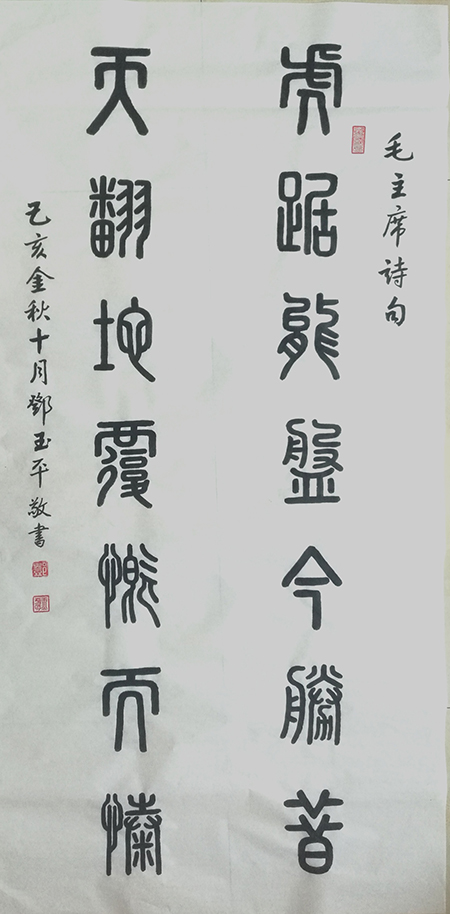 毛主席詩句
虎踞龍盤今勝昔
天翻地覆慨而慷
己亥金秋十月鄧玉平敬書